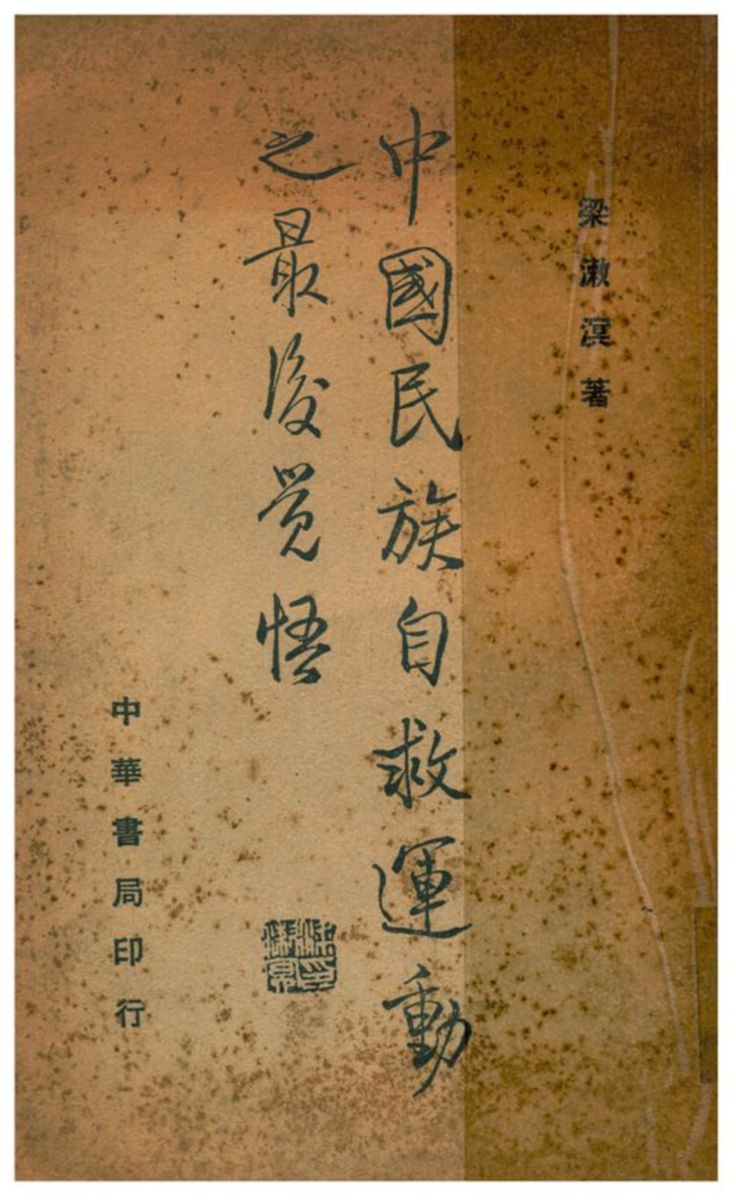 梁漱溟著
中國民族自救運動
之最後覺悟
中華書局印行